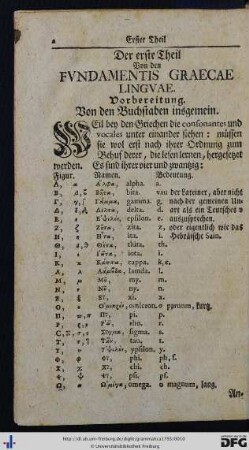 2 Erster Theil
Der erste Theil
Von den
FVNDAMENTIS GRAECAE
LINGVAE.
Vorbereitung.
Von den Buchstaben insgemein.
WEil bey den Griechen die consonantes und
vocales unter einander stehen: müssen
sie wol erst nach ihrer Ordnung zum
Behuf derer, die lesen lernen, hergesetzet
werden. Es sind ihrer vier und zwantzig:
Figur. Namen. Bedeutung.
Α, α Ἄλφα, alpha. a.
Β, β, ϐ Βῆτα, bita. van der Lateiner, aber nicht
Γ, γ Γάμμα, gamma. g. nach der gemeinen Un-
Δ, δ Δέλτα, delta. d. art als ein Teutsches
Ε, ε Ἐψιλὸν, epsilon. e. auszusprechen.
Ζ, ζ Ζῆτα, zita. z. oder eigentlich wie das
Η, η Ἦτα, ita. i. Hebräische Sain.
Θ, ϑ, θ Θῆτα, thita. th.
Ι, ι Ἰῶτα, iota. i.
Κ, κ Κάππα, cappa. k, c.
Λ, λ Λάμβδα, lamda. l.
Μ, μ Μῦ, my. m.
Ν, ν Νῦ, ny. n.
Ξ, ξ Ξῖ, xi. x.
Ο, ο Ὀμικρὸν, omicron. o parvum, kurtz.
Π, π Πῖ, pi. p.
Ρ, ρ Ῥῶ, rho. r.
Σ, σ, ς Σίγμα, sigma. s.
Τ, τ Ταῦ, tau. t.
Υ, υ Ὑψιλὸν, ypsilon. y.
Φ, φ Φῖ, phi. ph, f.
Χ, χ Χῖ, chi. ch.
Ψ, ψ Ψῖ, psi. ps.
Ω, ω Ὠμέγα, omega. o magnum, lang.
An-
http://dl.ub.uni-freiburg.de/diglit/grammatica1755/0010
© Universitätsbibliothek Freiburg